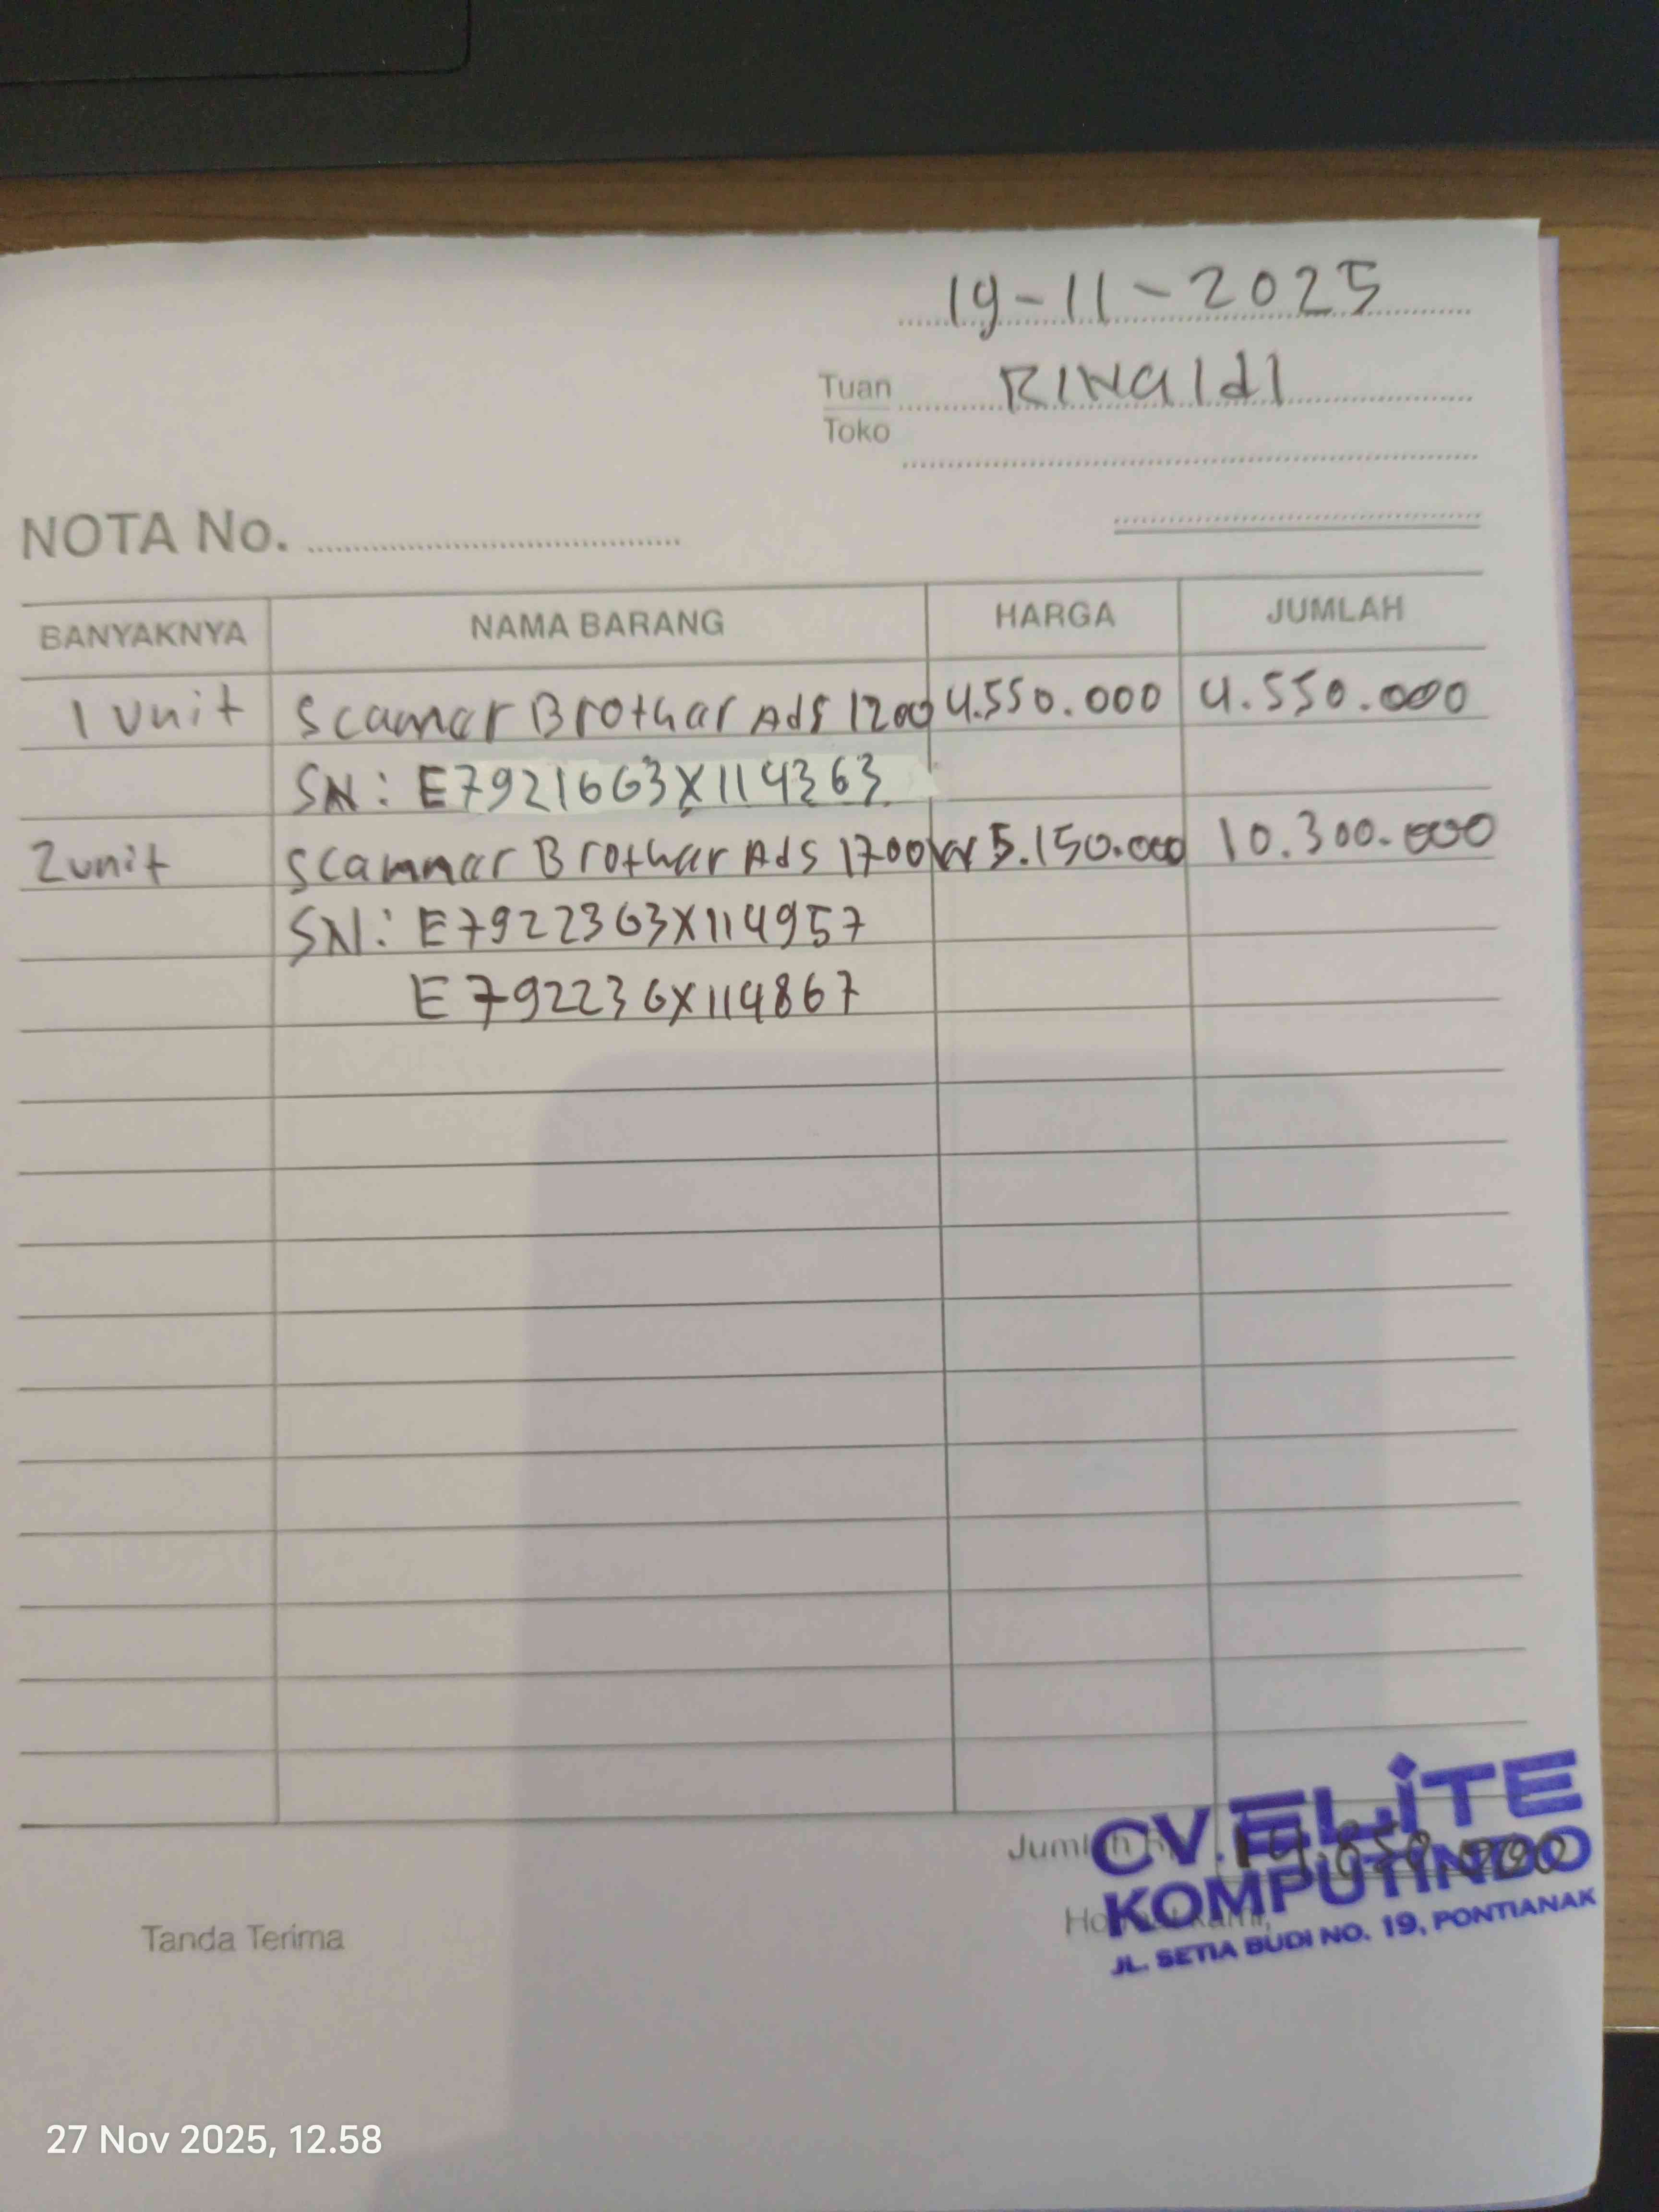 19-11-2025
Tuan RINaldI
Toko
NOTA No.
BANYAKNYA NAMA BARANG HARGA JUMLAH
1 Unit Scanner Brother Ads 1200 4.550.000 4.550.000
SN: E79216G3X114363
2unit Scanner Brother Ads 1700W 5.150.000 10.300.000
SN: E79223G3X114957
E79223GX114867
Jumlah 14.850.000
CV. ELiTE
KOMPUTINDO
JL. SETIA BUDI NO. 19, PONTIANAK
Tanda Terima
27 Nov 2025, 12.58